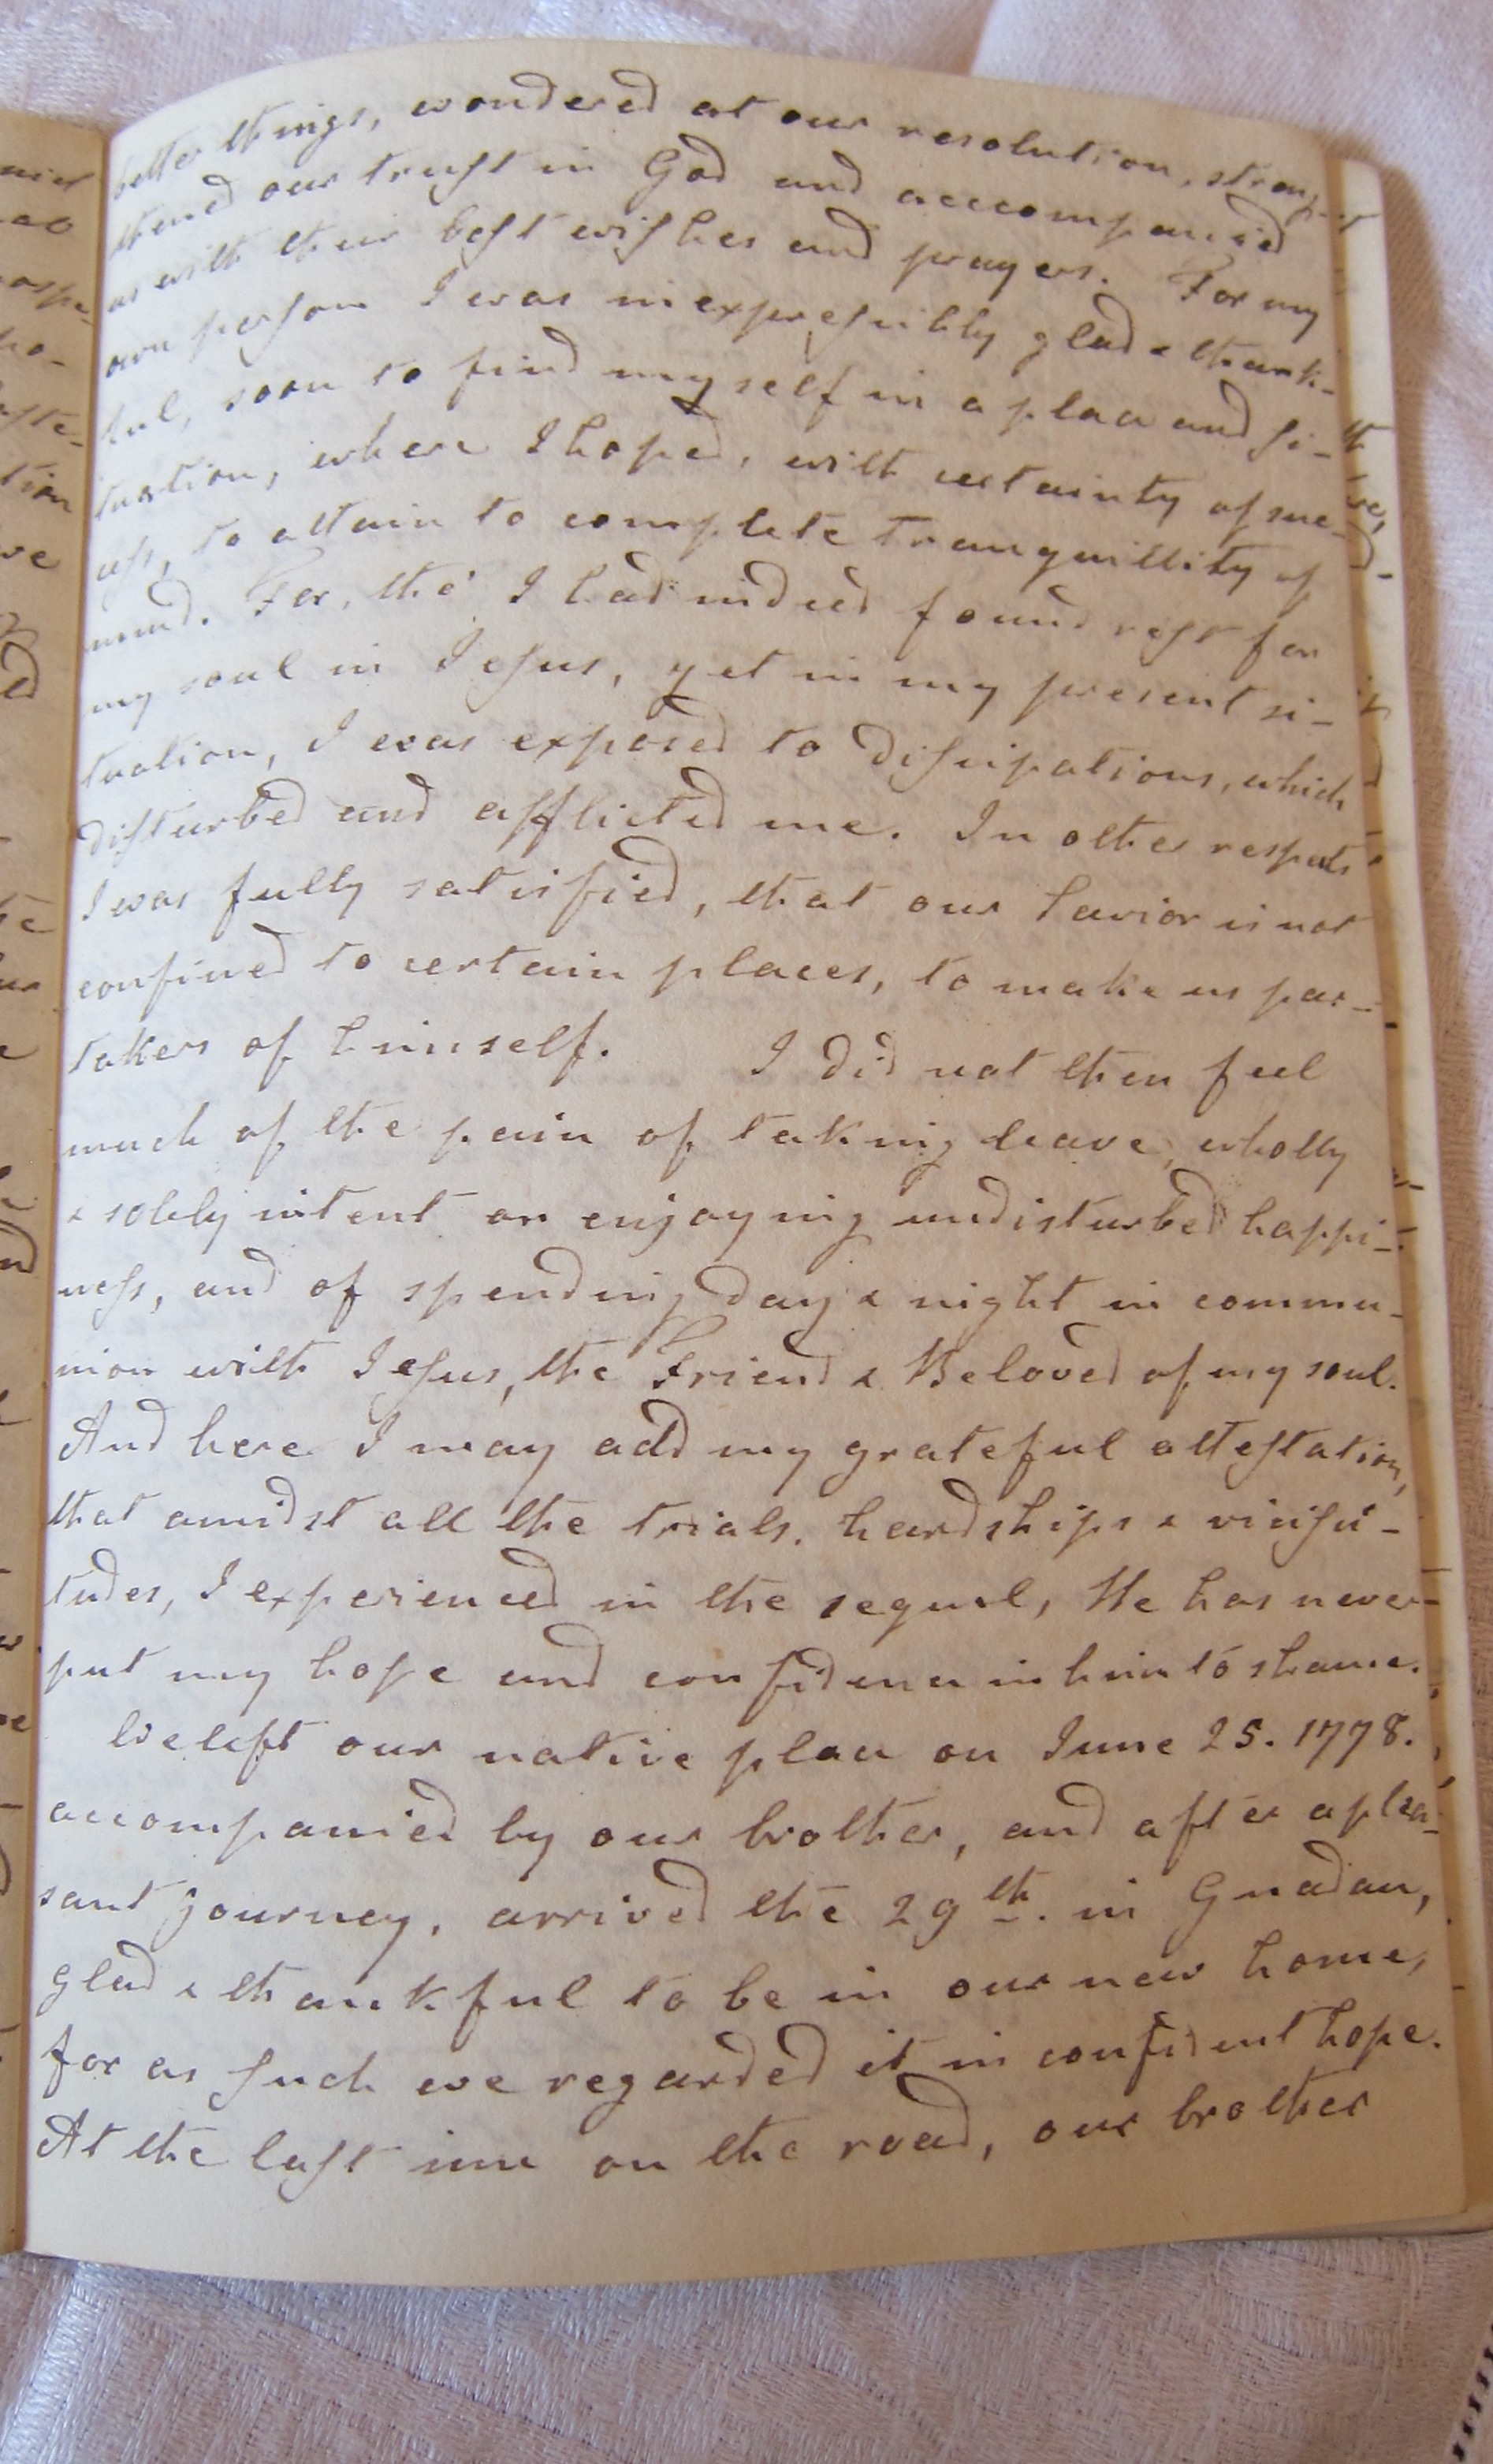 better things, wondered at our resolution, streng-
thened our trust in God and accompanied
us with their best wishes and prayers. For my
own person I was inexpressibly glad & thank-
ful, soon to find myself in a place and si-
tuation, where I hoped, with certainty of suc-
cess, to attain to complete tranquillity of
mind. For, tho' I had indeed found rest for
my soul in Jesus, yet in my present si-
tuation, I was exposed to dissipations, which
disturbed and afflicted me. In other respects
I was fully satisfied, that our Savior is not
confined to certain places, to make us par-
takers of himself. I did not then feel
much of the pain of taking leave, wholly
& solely intent on enjoying undisturbed happi-
ness, and of spending day & night in commu-
nion with Jesus, the Friend & Beloved of my soul.
And here I may add my grateful attestation,
that amidst all the trials, hardships & vicissi-
tudes, I experienced in the sequel, He has never
put my hope and confidence in him to shame.
We left our native place on June 25. 1778.
accompanied by our brother, and after a plea-
sant journey, arrived the 29th. in Gnadau,
glad & thankful to be in our new home,
for as such we regarded it in confident hope.
At the last inn on the road, our brother